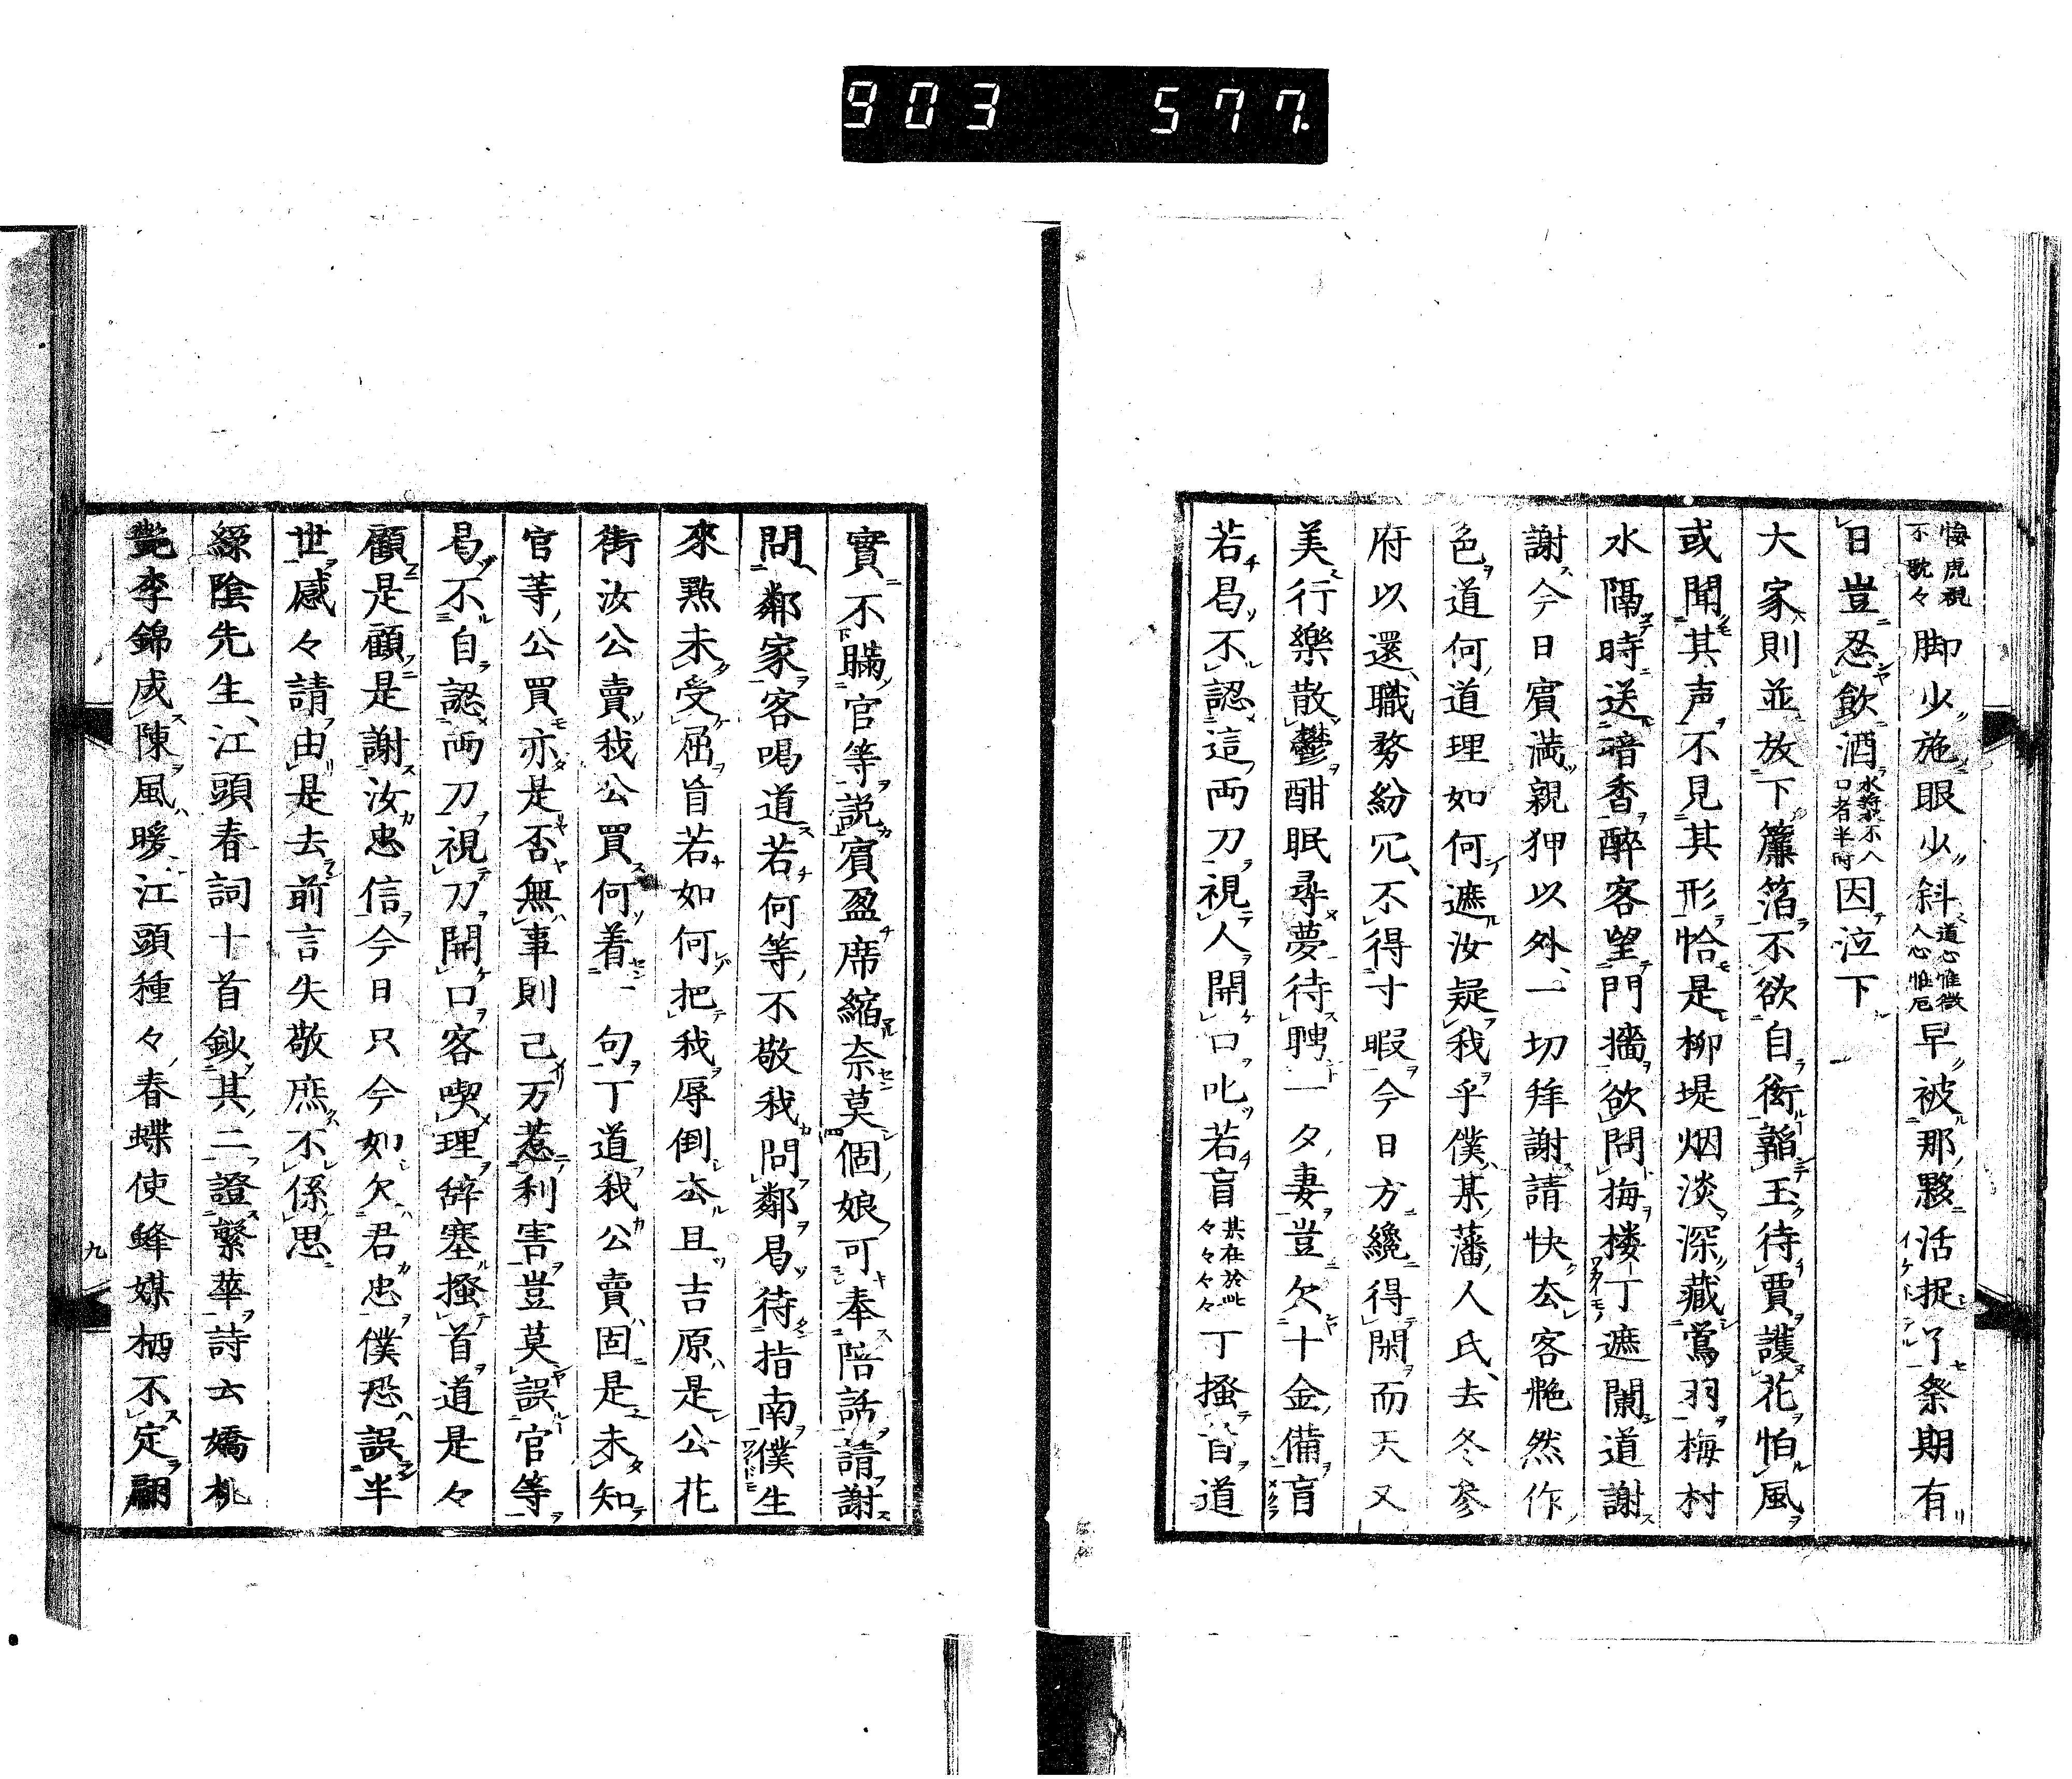 903 577.
悔虎視不耽々脚少施眼少斜道心惟微人心惟危早被那夥活捉了祭期有
日豈忍飲酒水漿不入口者半時因泣下
大家則並放下簾箔不欲自衒韜玉待賈護花怕風
或聞其声不見其形恰是柳堤烟淡深藏鶯羽梅村
水隔時送暗香醉客望門墻欲問梅楼丁遮闌道謝
謝今日賓満親狎以外一切拜謝請快去客艴然作
色道何道理如何遮汝疑我乎僕某藩人氏去冬参
府以還職務紛冗不得寸暇今日方纔得閑而天又
美行樂散鬱酣眠尋夢待聘一夕妻豈欠十金備盲
若曷不認這両刀視人開口叱若盲其在於此々々々々丁搔首道
實不瞞官等説賓盈席縮奈莫個娘可奉陪話請謝
問鄰家客喝道若何等不敬我問鄰曷待指南僕生
來點未受屈旨若如何把我辱倒去且吉原是公花
街汝公賣我公買何着一句丁道我公賣固是未知
官等公買亦是否無事則已万惹利害豈莫誤官等
曷不自認両刀視刀開口客喫理辞塞搔首道是々
顧是顧是謝汝忠信今日只今如欠君忠僕恐誤半
世感々請由是去前言失敬庶不係思
緑陰先生江頭春詞十首鈔其二證繁華詩云嬌桃
艶李錦成陳風暖江頭種々春蝶使蜂媒栖不定翩
九